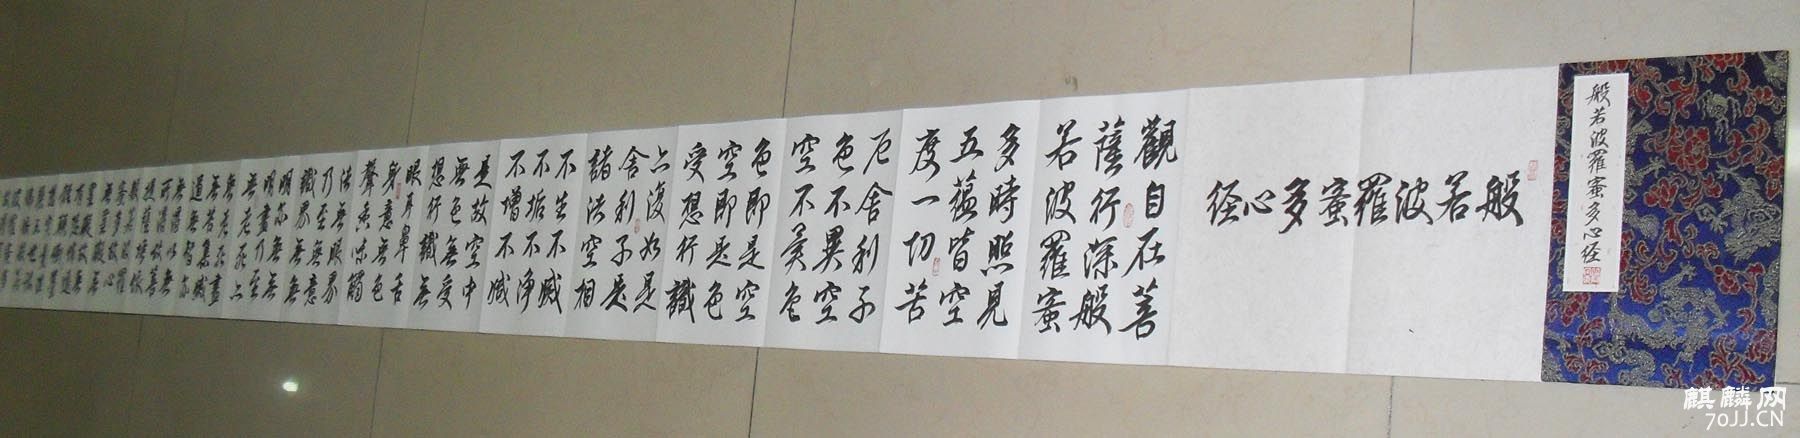 般若波羅蜜多心经
般若波羅蜜多心经
觀自在菩
薩行深般
若波羅蜜
多時照見
五蕴皆空
度一切苦
厄舍利子
色不異空
空不異色
色即是空
空即是色
受想行識
亦復如是
舍利子是
諸法空相
不生不滅
不垢不净
不增不减
是故空中
無色無受
想行識無
眼耳鼻舌
身意無色
聲香味觸
法無眼界
乃至無意
識界無無
明亦無無
明盡乃至
無老死亦
無老死盡
無苦集滅
道無智亦
無得以無
所得故菩
提薩埵依
麒麟网
70JJ.CN